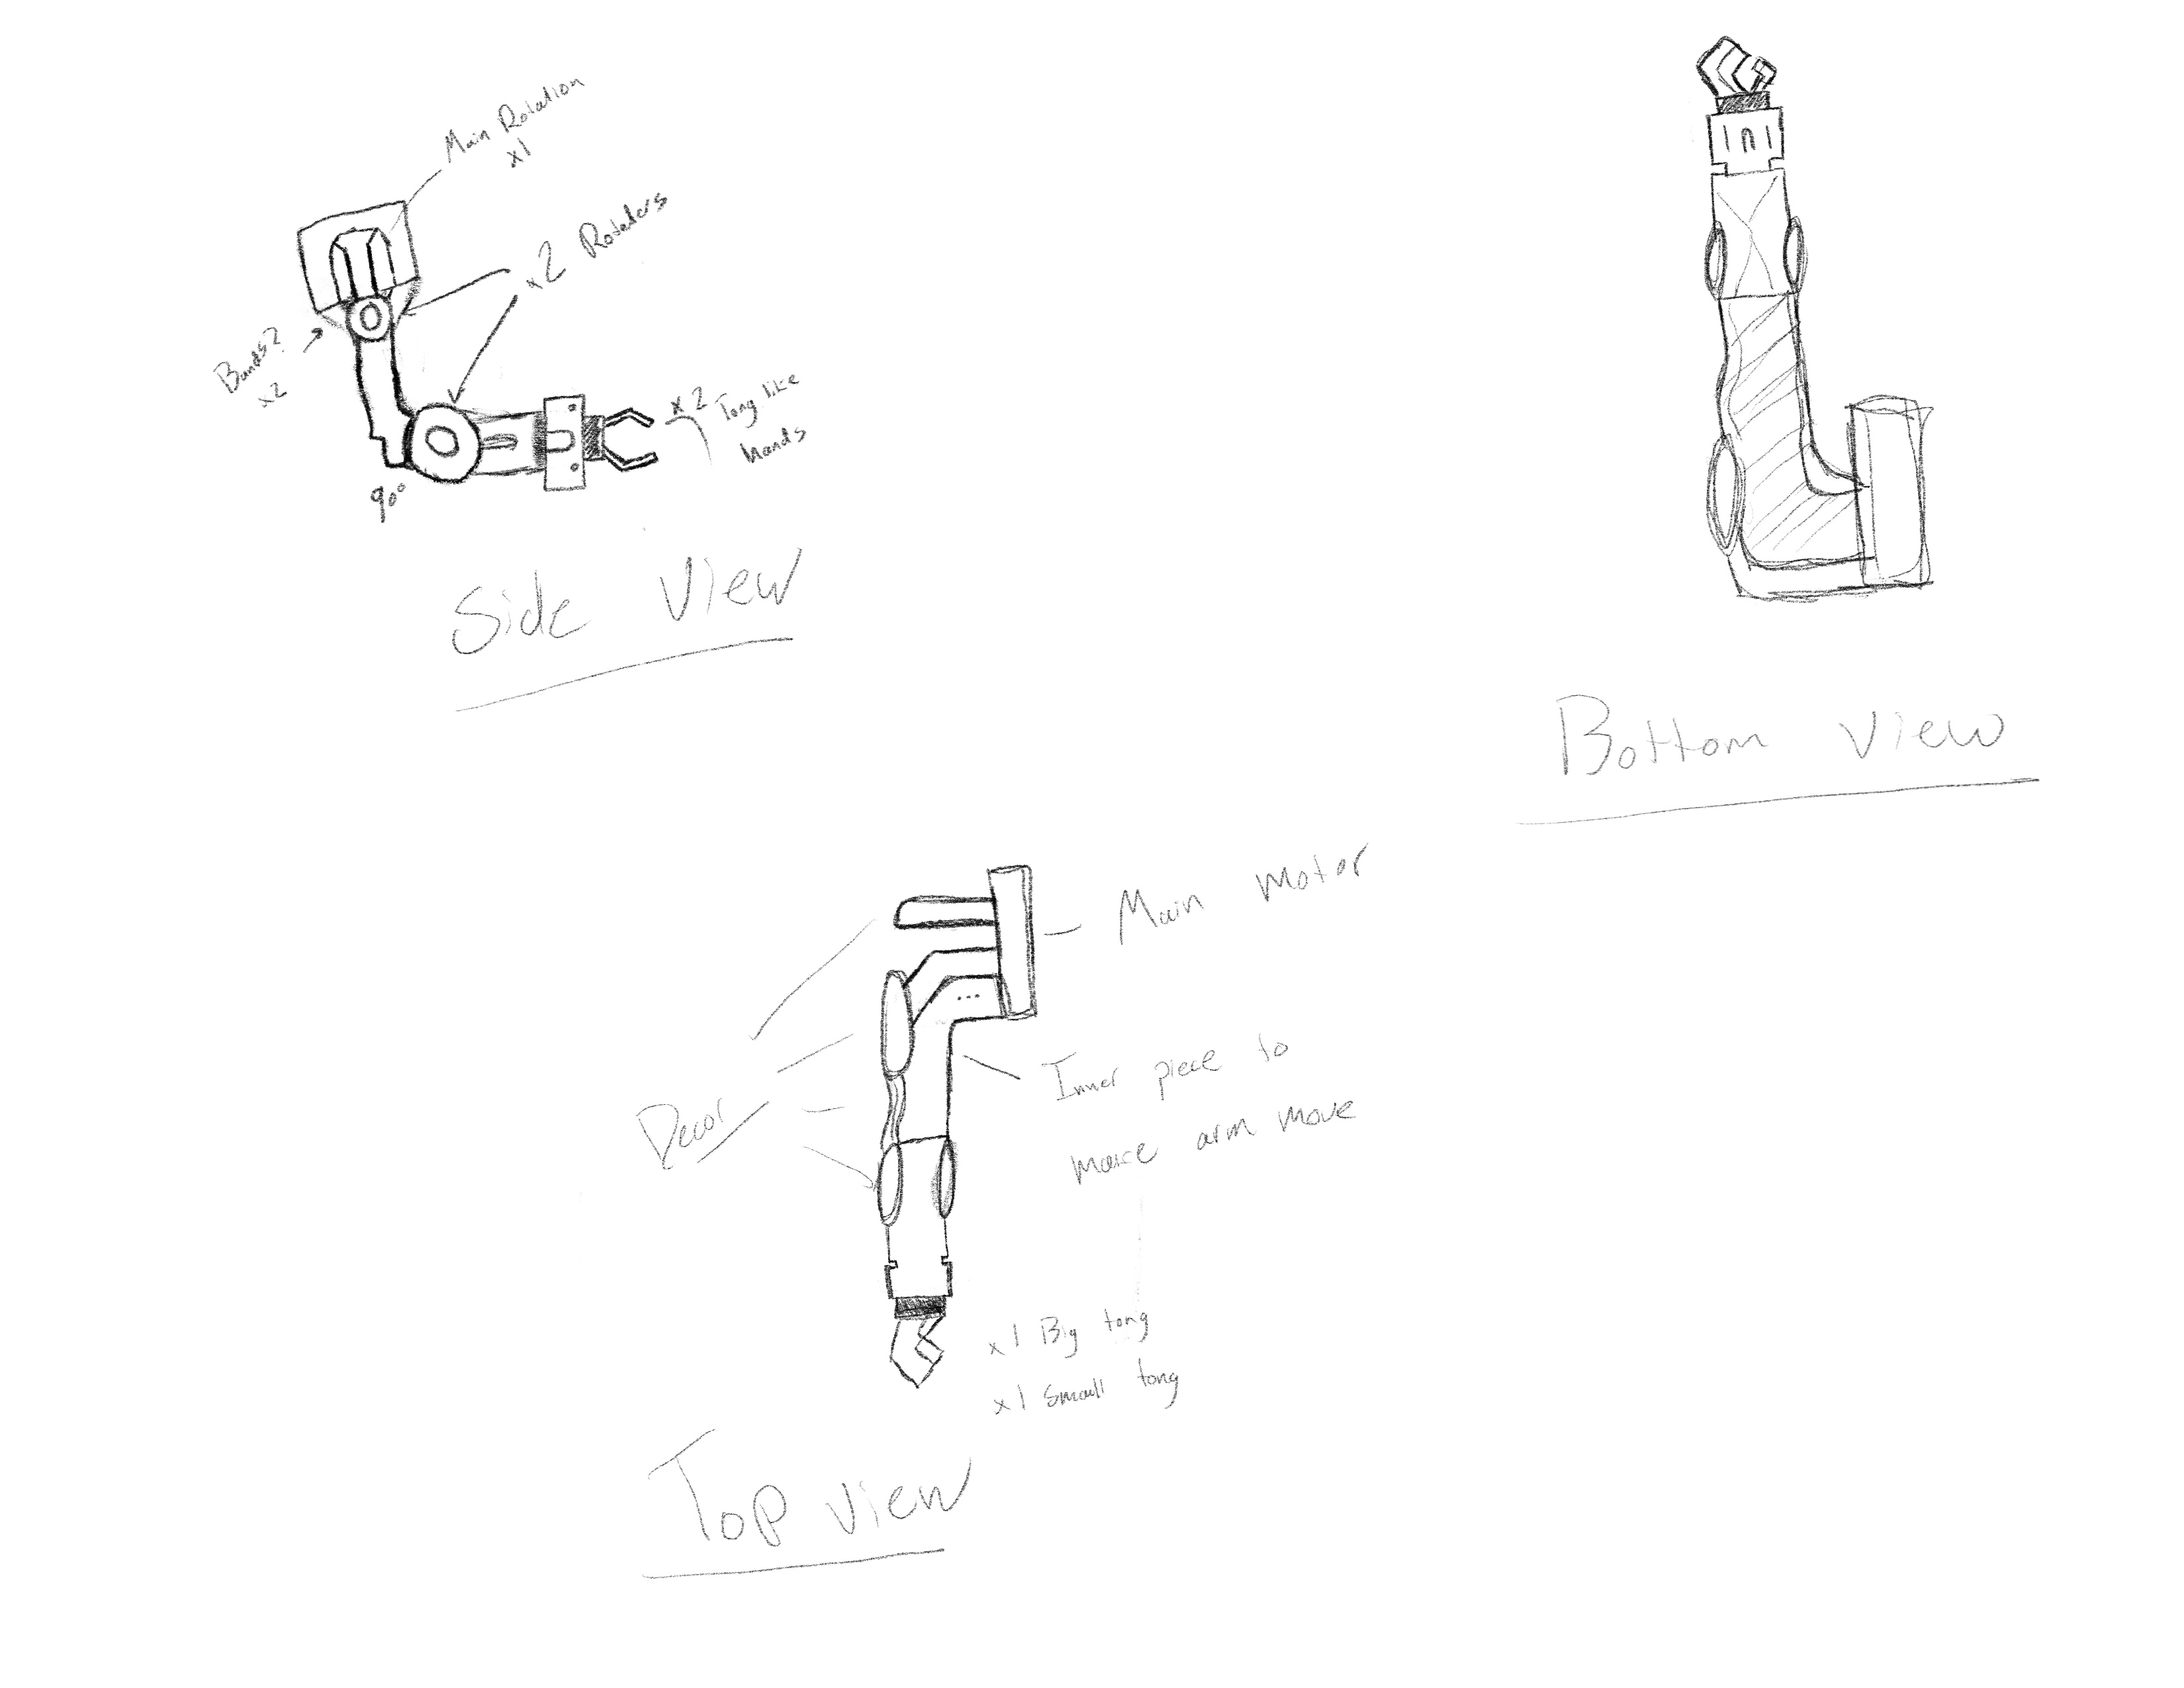 Main Rotation
x1
x2 Rotaders
Bands?
x2
x2 Tong like
hands
90°
Side View
Bottom view
Main Motor
Decor
Inner piece to
make arm move
x1 Big tong
x1 Small tong
Top view